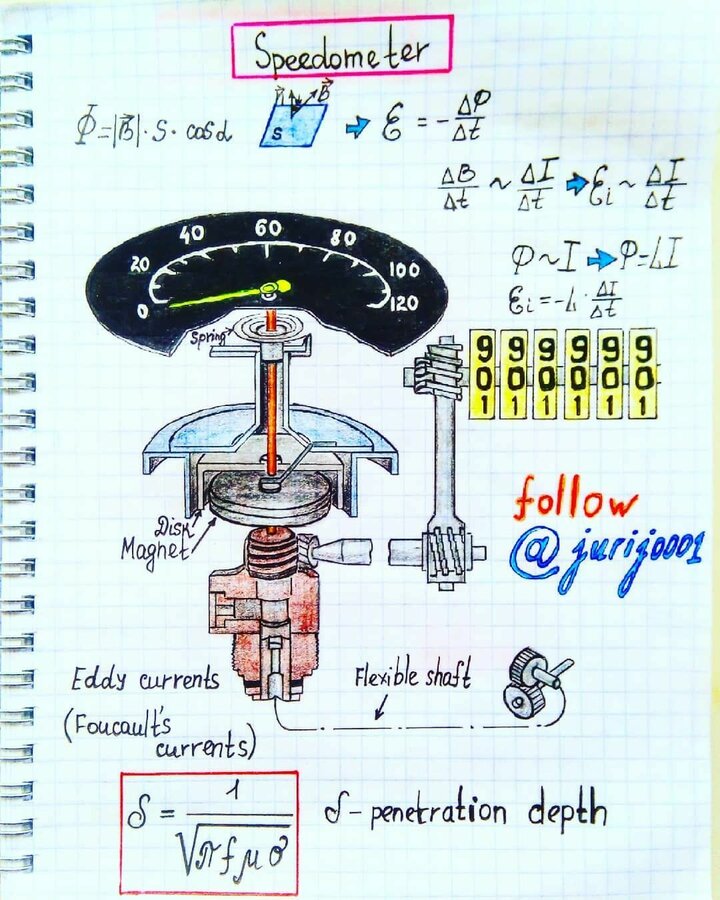 Speedometer
Φ=|B⃗|·S·cosα
n⃗ B⃗
S
ℰ = -ΔΦ/Δt
ΔB/Δt ~ ΔI/Δt ⇒ ℰi ~ ΔI/Δt
Φ~I ⇒ Φ=LI
ℰi=-L·ΔI/Δt
0 20 40 60 80 100 120
Spring
9 9 9 9 9 9
0 0 0 0 0 0
1 1 1 1 1 1
follow
@jurij0001
Disk
Magnet
Eddy currents
(Foucault's
currents)
Flexible shaft
δ = 1/√(πfμσ)
δ - penetration depth